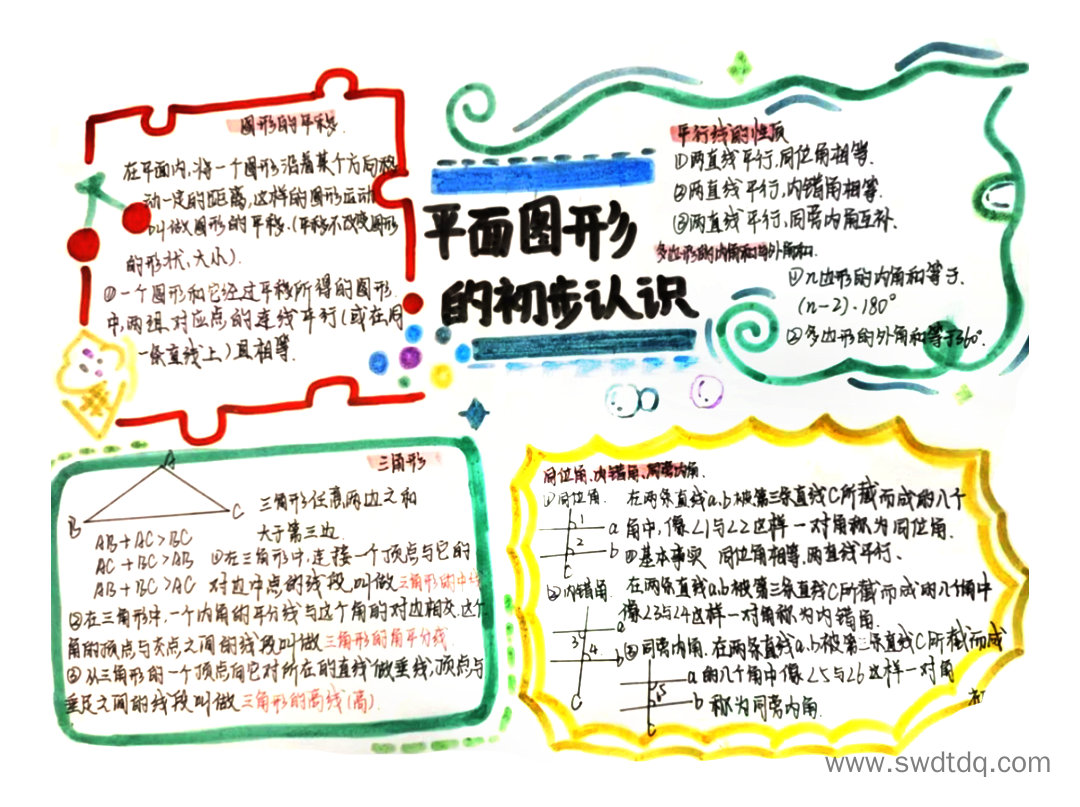 图形的平移.
在平面内,将一个图形沿着某个方向移
动一定的距离,这样的图形运动
叫做图形的平移.(平移不改变图形
的形状,大小).
①一个图形和它经过平移所得的图形
中,两组对应点的连线平行(或在同
一条直线上)且相等.
平面图形
的初步认识
平行线的性质
①两直线平行,同位角相等.
②两直线平行,内错角相等.
③两直线平行,同旁内角互补.
多边形的内角和与外角和.
①n边形的内角和等于.
(n-2)·180°
②多边形的外角和等于360°.
三角形
A
B
C
三角形任意两边之和
大于第三边.
AB+AC>BC
AC+BC>AB
AB+BC>AC
①在三角形中,连接一个顶点与它的
对边中点的线段叫做三角形的中线
②在三角形中,一个内角的平分线与这个角的对边相交,这个
角的顶点与交点之间的线段叫做三角形的角平分线.
③从三角形的一个顶点向它对所在的直线做垂线,顶点与
垂足之间的线段叫做三角形的高线(高).
同位角、内错角、同旁内角.
①同位角.
在两条直线a.b被第三条直线C所截而成的八个
角中,像∠1与∠2这样一对角称为同位角.
①基本事实 同位角相等,两直线平行.
1
2
a
b
C
②内错角
在两条直线a.b被第三条直线C所截而成的八个角中
像∠3与∠4这样一对角称为内错角.
3
4
a
b
C
③同旁内角.在两条直线a.b被第三条直线C所截而成
的八个角中像∠5与∠6这样一对角
称为同旁内角.
a
b
5
C
www.swdtdq.com